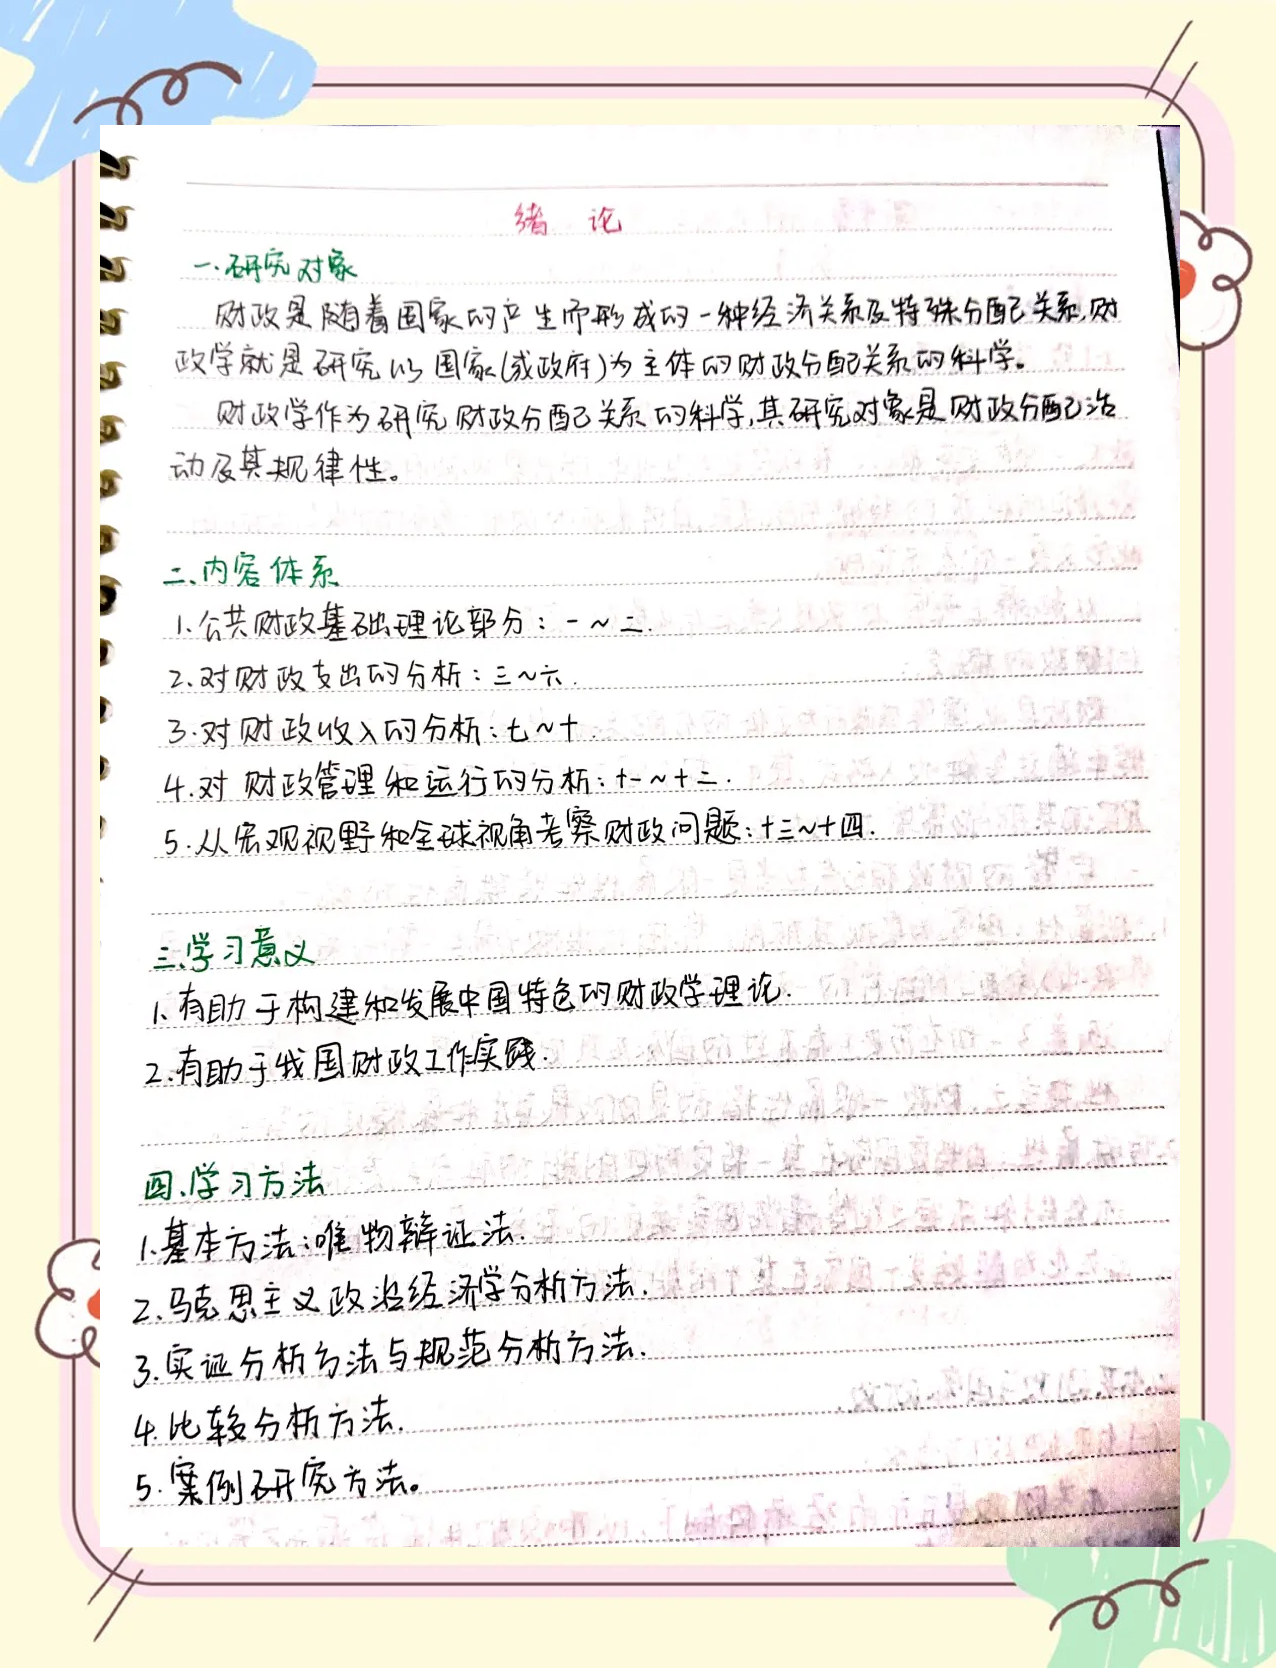 绪 论
一.研究对象
财政是随着国家的产生而形成的一种经济关系及特殊分配关系,财
政学就是研究以国家(或政府)为主体的财政分配关系的科学。
财政学作为研究财政分配关系的科学,其研究对象是财政分配活
动及其规律性。
二、内容体系
1.公共财政基础理论部分:一~二.
2.对财政支出的分析:三~六.
3.对财政收入的分析:七~十.
4.对财政管理和运行的分析:十一~十二.
5.从宏观视野和全球视角考察财政问题:十三~十四.
三、学习意义
1.有助于构建和发展中国特色的财政学理论.
2.有助于我国财政工作实践.
四、学习方法
1.基本方法:唯物辩证法.
2.马克思主义政治经济学分析方法.
3.实证分析方法与规范分析方法.
4.比较分析方法.
5.案例研究方法。